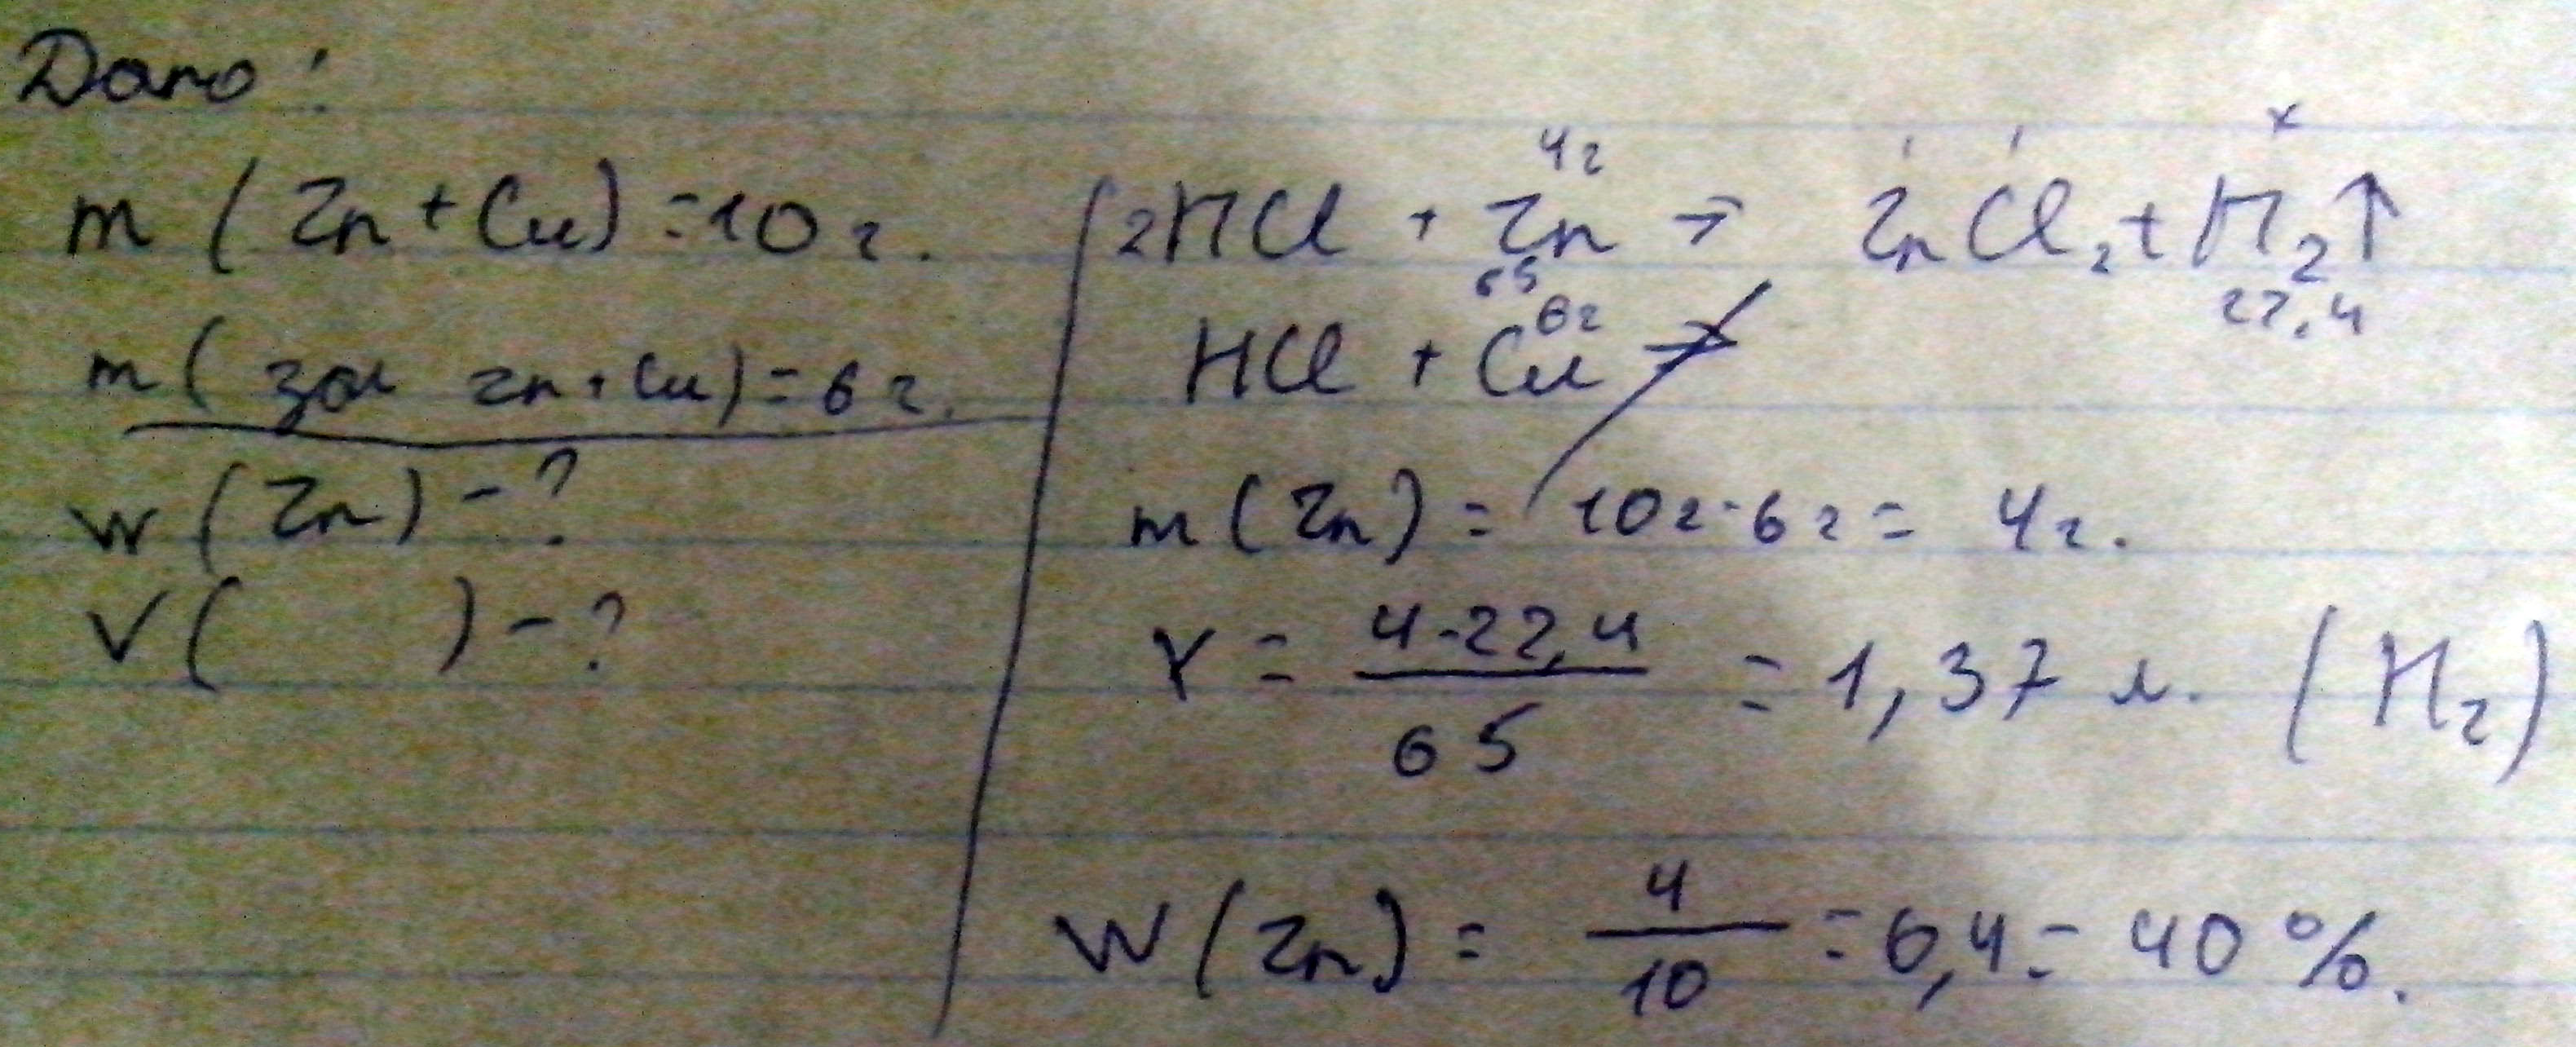 Дано:
m (Zn+Cu) = 10 г.
m ( зал Zn+Cu) = 6 г.
W (Zn) - ?
V ( ) - ?
4г x
2HCl + Zn → ZnCl2 + H2↑
65 22,4
6г
HCl + Cu →
m (Zn) = 10г - 6г = 4г.
X = 4·22,4 / 65 = 1,37 л. (H2)
W (Zn) = 4 / 10 = 0,4 = 40 %.